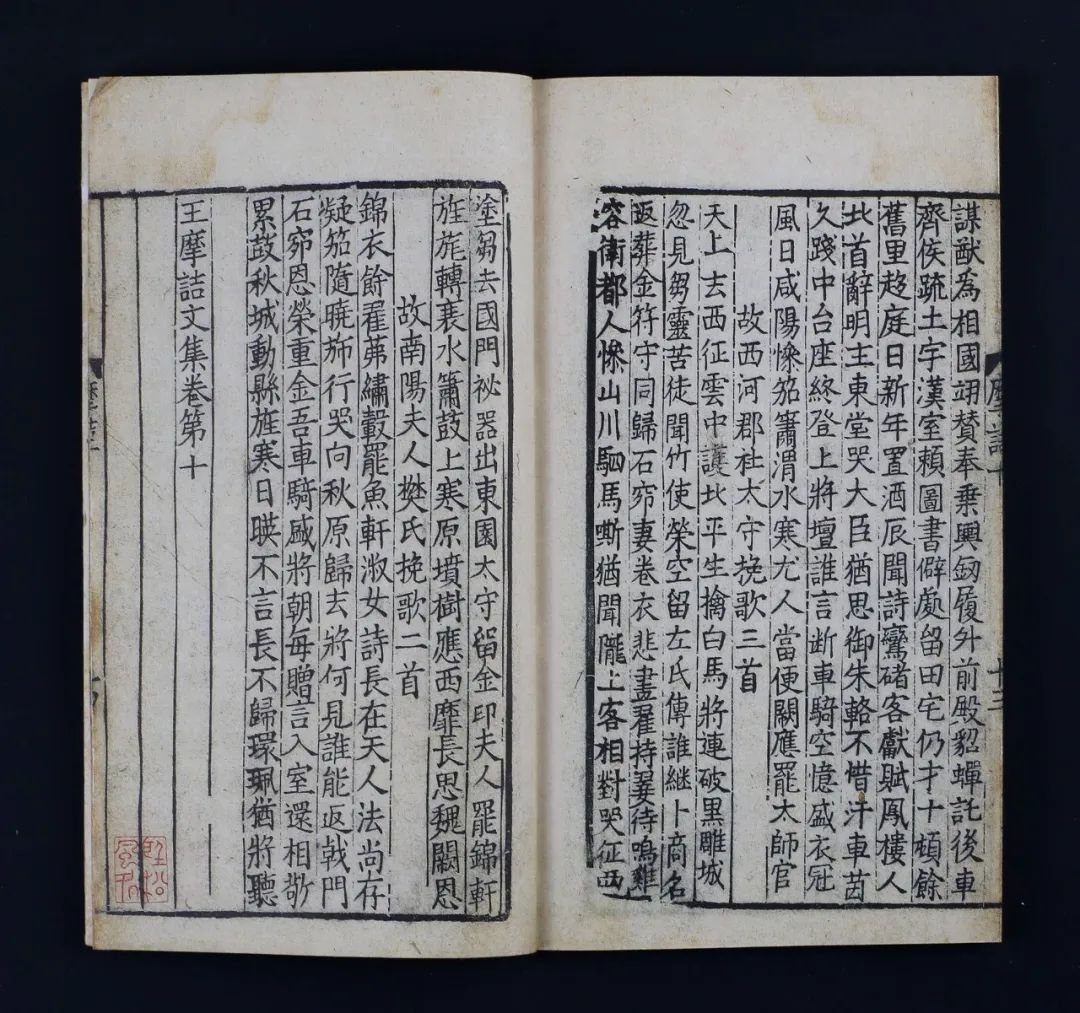 謀猷為相國翊贊奉乗輿釼履外前殿貂蟬託後車
齊侯䟽土宇漢室賴圖書僻處留田宅仍才十頃餘
舊里趍庭日新年置酒辰聞詩鸞渚客獻賦鳳樓人
北首辭明主東堂哭大臣猶思御朱輅不惜汙車茵
久踐中台座終登上將壇誰言断車騎空憶盛衣冠
風日咸陽慘笳簫渭水寒尤人當便闕應罷太師官
故西河郡杜太守挽歌三首
天上去西征雲中護北平生擒白馬將連破黒雕城
忽見芻靈苦徒聞竹使榮空留左氏傳誰継卜商名
返葬金符守同歸石窌妻卷衣悲畫翟持翣待鳴雞
容衛都人慘山川駟馬嘶猶聞隴上客相對哭征西
摩詰十
十三
塗芻去國門祕器出東園太守留金印夫人罷錦軒
旌旄轉衰水簫鼓上寒原墳樹應西靡長思魏闕恩
故南陽夫人樊氏挽歌二首
錦衣餘翟茀繡轂罷魚軒淑女詩長在天人法尚存
凝笳隨曉斾行哭向秋原歸去將何見誰能返戟門
石窌恩榮重金吾車騎盛將朝每贈言入室還相敬
累鼓秋城動縣旌寒日暎不言長不歸環珮猶將聽
王摩詰文集卷第十